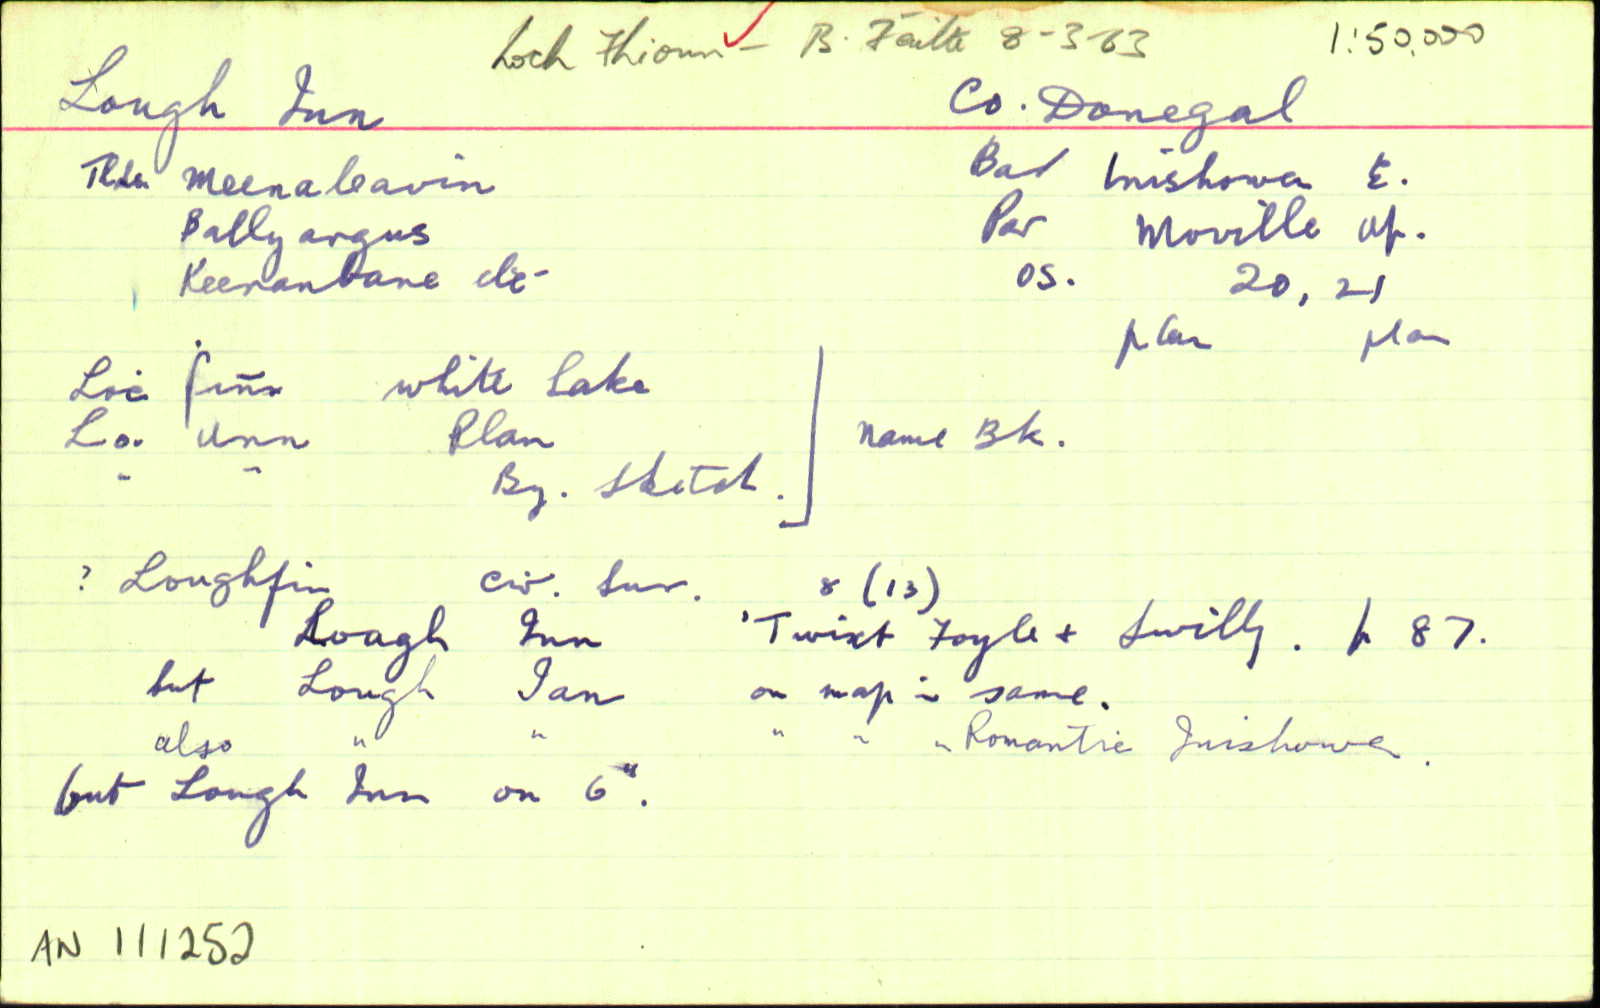 Loch Fhionn – B. Fáilte 8-3-63 1:50,000
Lough Inn Co. Donegal
Tlds. Meenaleavin Bar Inishowen E.
Ballyargus Par Moville Up.
Keenanbane etc OS. 20, 21
plan plan
Loċ ḟinn white lake
Lo. Unn Plan Name Bk.
" " By. Sketch.
? Loughfin Civ. Sur. 8 (13)
Lough Inn 'Twixt Foyle + Swilly. p 87.
but Lough Ian on map in same.
also " " " " " Romantic Inishowen.
but Lough Inn on 6".
AN 111252